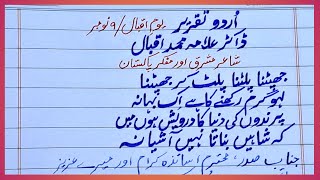 اُردو تقریر یومِ اقبال / ۹ نومبر
ڈاکٹر علامہ محمد اقبال
شاعرِ مشرق اور مفکرِ پاکستان
جھپٹنا پلٹنا پلٹ کر جھپٹنا
لہو گرم رکھنے کا ہے اک بہانہ
پرندوں کی دنیا کا درویش ہوں میں
کہ شاہیں بناتا نہیں آشیانہ
جنابِ صدر، محترم اساتذہ کرام اور میرے عزیز